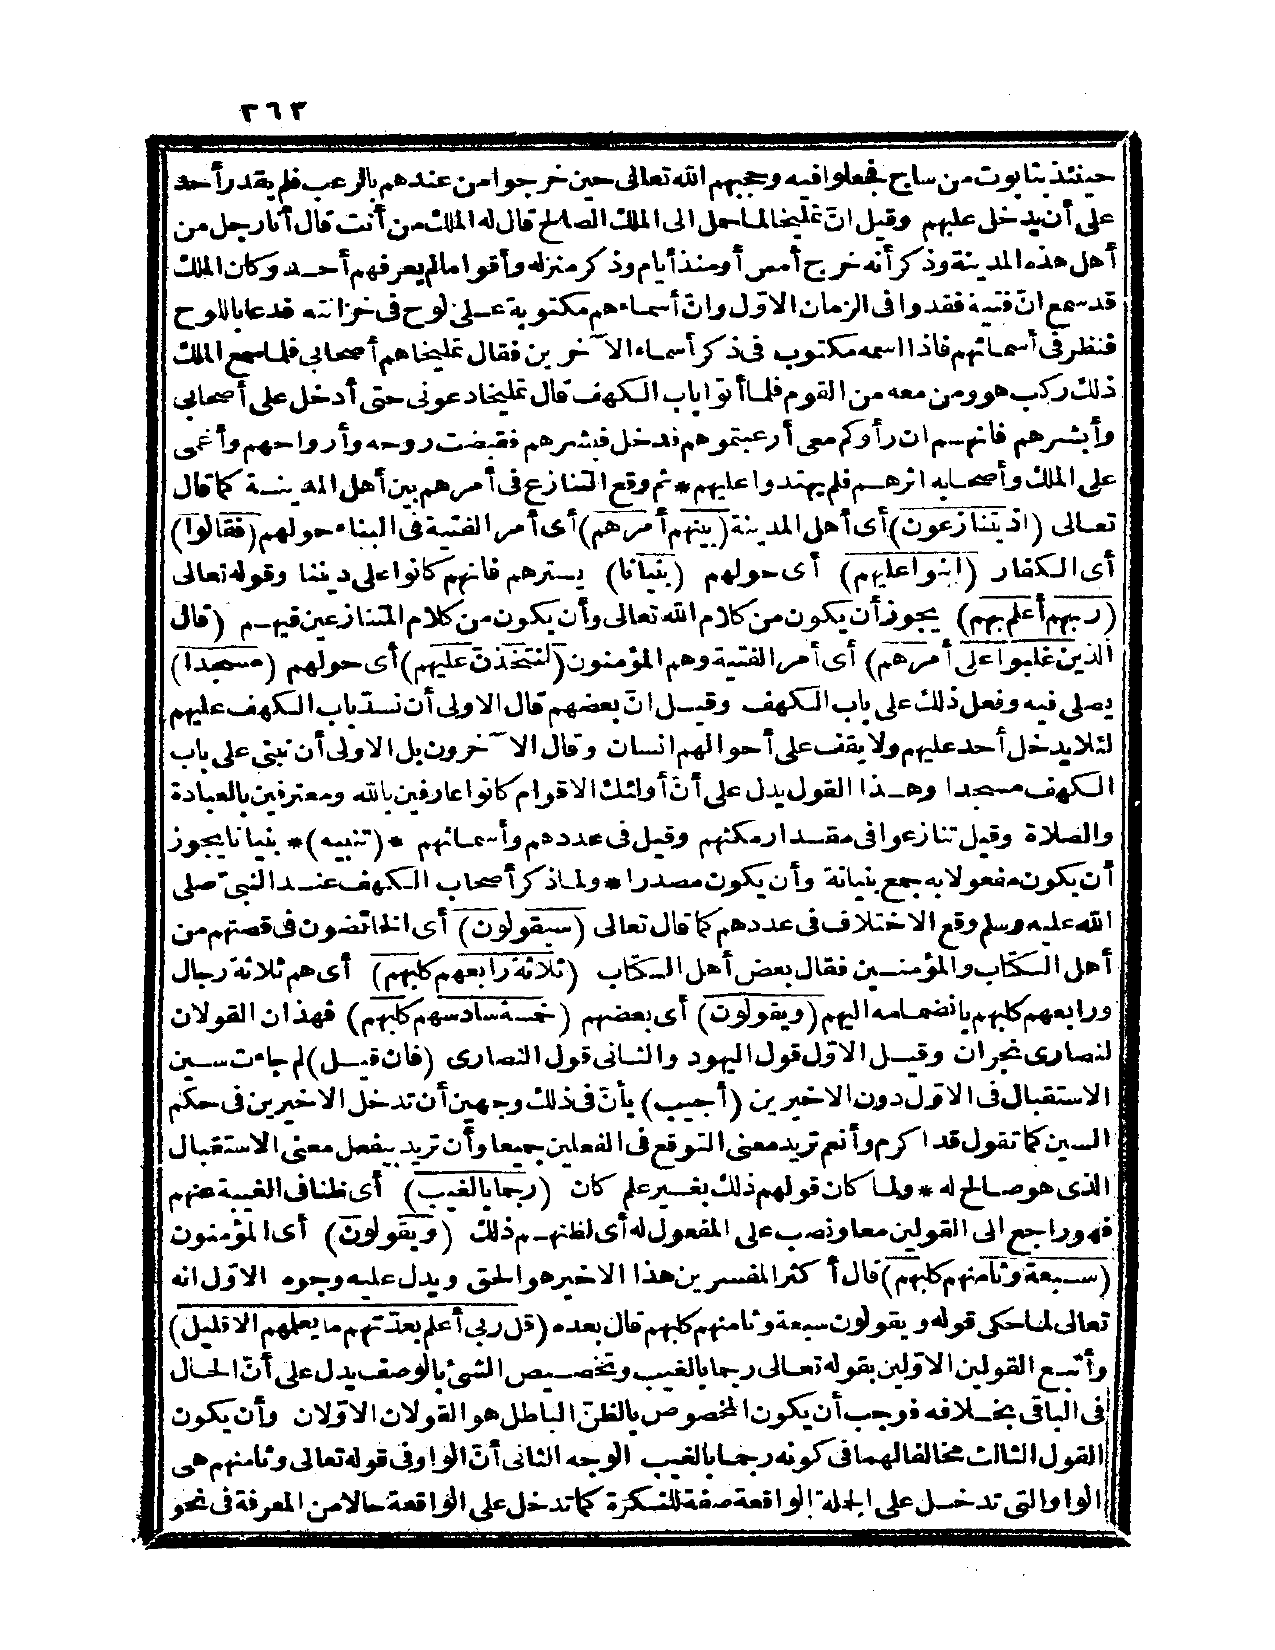 ٣٦٣
حينئذ بتابوت من ساج فجعلوا فيه وحجبهم الله تعالى حين خرجوا من عندهم بالرعب فلم يقدر أحد
على أن يدخل عليهم وقيل انّ تمليخا لما حمل الى الملك الصالح قال له الملك من أنت قال أنا رجل من
أهل هذه المدينة وذكر أنه خرج أمس أو منذ أيام وذكر منزله وأقواما لم يعرفهم أحد وكان الملك
قد سمع انّ فتية فقدوا فى الزمان الاوّل وانّ أسماءهم مكتوبة على لوح فى خزانته فدعا باللوح
فنظر فى أسمائهم فاذا اسمه مكتوب فى ذكر أسماء الآخرين فقال تمليخا هم أصحابى فلما سمع الملك
ذلك ركب هو ومن معه من القوم فلما أتوا باب الكهف قال تمليخا دعونى حتى أدخل على أصحابى
وأبشرهم فانهم ان رأوكم معى أرعبتموهم فدخل فبشرهم فقبضت روحه وأرواحهم وأعمى
على الملك وأصحابه اثرهم فلم يهتدوا عليهم * ثم وقع التنازع فى أمرهم بين أهل المدينة كما قال
تعالى (اذ يتنازعون) أى أهل المدينة (بينهم أمرهم) أى أمر الفتية فى البناء حولهم (فقالوا)
أى الكفار (ابنوا عليهم) أى حولهم (بنيانا) يسترهم فانهم كانوا على ديننا وقوله تعالى
(ربهم أعلم بهم) يجوز أن يكون من كلام الله تعالى وأن يكون من كلام المتنازعين فيهم (قال
الذين غلبوا على أمرهم) أى أمر الفتية وهم المؤمنون (لنتخذنّ عليهم) أى حولهم (مسجدا)
يصلى فيه وفعل ذلك على باب الكهف وقيل انّ بعضهم قال الاولى أن نسدّ باب الكهف عليهم
لئلا يدخل أحد عليهم ولا يقف على أحوالهم انسان وقال الآخرون بل الاولى أن نبنى على باب
الكهف مسجدا وهذا القول يدل على أنّ أولئك الاقوام كانوا عارفين بالله ومعترفين بالعبادة
والصلاة وقيل تنازعوا فى مقدار مكثهم وقيل فى عددهم وأسمائهم * (تنبيه) * بنيانا يجوز
أن يكون مفعولا به جمع بنيانة وأن يكون مصدرا * ولما ذكر أصحاب الكهف عند النبىّ صلى
الله عليه وسلم وقع الاختلاف فى عددهم كما قال تعالى (سيقولون) أى الخائضون فى قصتهم من
أهل الكتاب والمؤمنين فقال بعض أهل الكتاب (ثلاثة رابعهم كلبهم) أى هم ثلاثة رجال
ورابعهم كلبهم بانضمامه اليهم (ويقولون) أى بعضهم (خمسة سادسهم كلبهم) فهذان القولان
لنصارى نجران وقيل الاوّل قول اليهود والثانى قول النصارى (فان قيل) لم جاءت سين
الاستقبال فى الاوّل دون الاخيرين (أجيب) بأنّ فى ذلك وجهين أن تدخل الاخيرين فى حكم
السين كما تقول قد أكرم وأنعم تريد معنى التوقع فى الفعلين جميعا وأن تريد بيفعل معنى الاستقبال
الذى هو صالح له * ولما كان قولهم ذلك بغير علم كان (رجما بالغيب) أى ظنا فى الغيبة عنهم
فهو راجع الى القولين معا ونصب على المفعول له أى لظنهم ذلك (ويقولون) أى المؤمنون
(سبعة وثامنهم كلبهم) قال أكثر المفسرين هذا الاخير هو الحق ويدل عليه وجوه الاوّل انه
تعالى لما حكى قوله ويقولون سبعة وثامنهم كلبهم قال بعده (قل ربى أعلم بعدّتهم ما يعلمهم الا قليل)
وأتبع القولين الاوّلين بقوله تعالى رجما بالغيب وتخصيص الشئ بالوصف يدل على أنّ الحال
فى الباقى بخلافه فوجب أن يكون المخصوص بالظنّ الباطل هو القولان الاوّلان وأن يكون
القول الثالث مخالفا لهما فى كونه رجما بالغيب الوجه الثانى أنّ الواو فى قوله تعالى وثامنهم هى
الواو التى تدخل على الجملة الواقعة صفة للنكرة كما تدخل على الواقعة حالا من المعرفة فى نحو